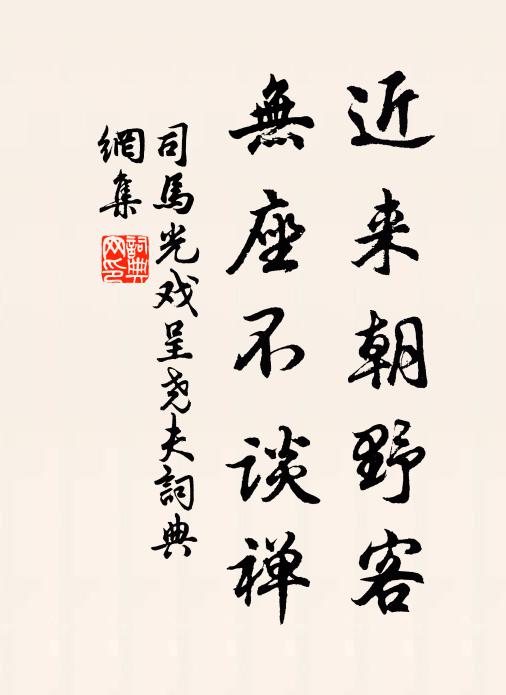 近来朝野客
無座不談禅
司馬光戏呈尧夫詞典
網集
詞典
网印